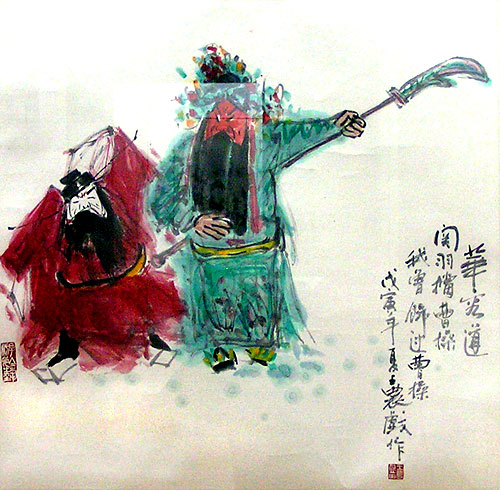 華容道
関羽擋曹操
我曾饒过曹操
戊寅年夏農戲作